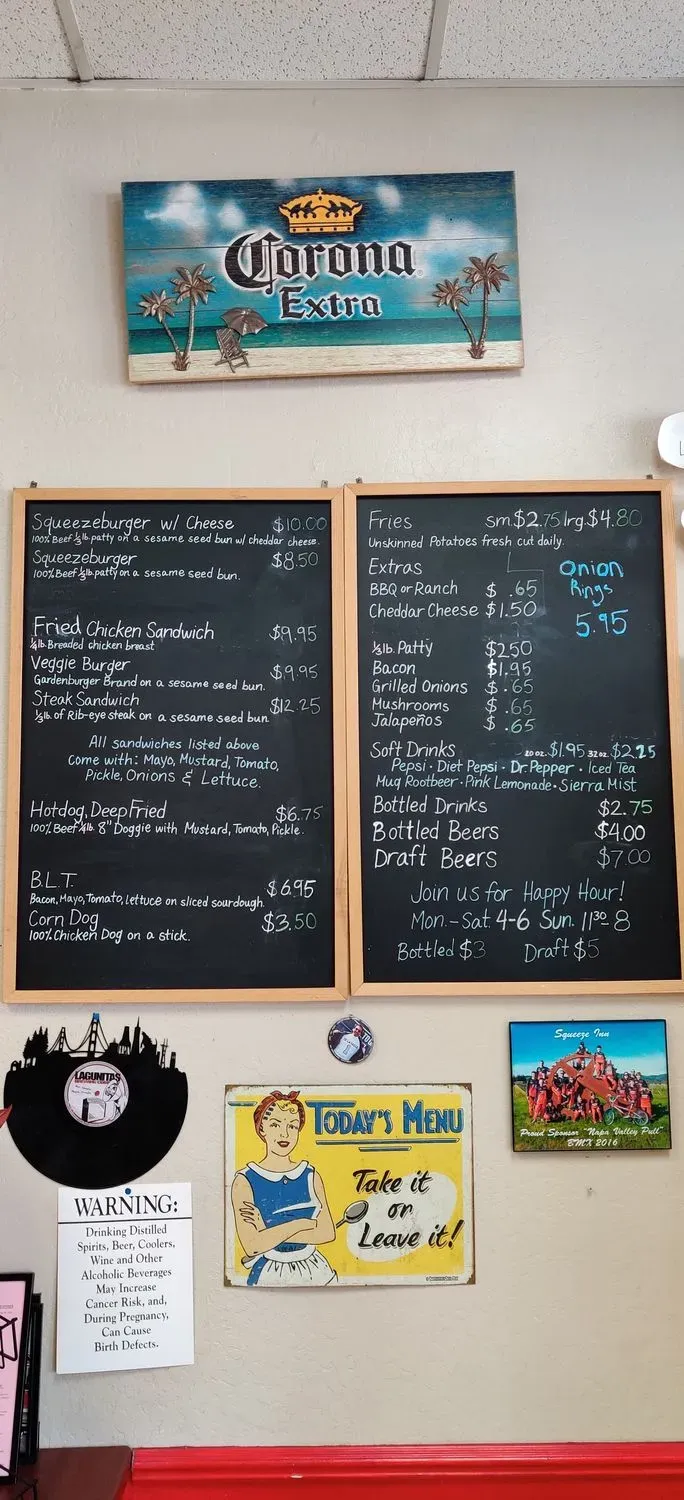 Corona
Extra
Squeezeburger w/ Cheese $10.00
100% Beef ⅓lb. patty on a sesame seed bun w/ cheddar cheese.
Squeezeburger $8.50
100% Beef ⅓lb. patty on a sesame seed bun.
Fried Chicken Sandwich $9.95
¼lb. Breaded chicken breast
Veggie Burger $9.95
Gardenburger Brand on a sesame seed bun.
Steak Sandwich $12.25
⅓lb. of Rib-eye steak on a sesame seed bun
All sandwiches listed above
come with: Mayo, Mustard, Tomato,
Pickle, Onions & Lettuce.
Hotdog, Deep Fried $6.75
100% Beef ¼lb. 8" Doggie with Mustard, Tomato, Pickle.
B.L.T. $6.95
Bacon, Mayo, Tomato, lettuce on sliced sourdough.
Corn Dog $3.50
100% Chicken Dog on a stick.
Fries sm. $2.75 lrg. $4.80
Unskinned Potatoes fresh cut daily.
Extras
BBQ or Ranch $ .65
Cheddar Cheese $1.50
Onion
Rings
5.95
⅓lb. Patty $2.50
Bacon $1.95
Grilled Onions $ .65
Mushrooms $ .65
Jalapeños $ .65
Soft Drinks 20 oz. $1.95 32 oz. $2.25
Pepsi • Diet Pepsi • Dr. Pepper • Iced Tea
Mug Rootbeer • Pink Lemonade • Sierra Mist
Bottled Drinks $2.75
Bottled Beers $4.00
Draft Beers $7.00
Join us for Happy Hour!
Mon.-Sat. 4-6 Sun. 11³⁰-8
Bottled $3 Draft $5
LAGUNITAS
Squeeze Inn
Proud Sponsor "Napa Valley Pull"
BMX 2016
TODAY'S MENU
Take it
or
Leave it!
WARNING:
Drinking Distilled
Spirits, Beer, Coolers,
Wine and Other
Alcoholic Beverages
May Increase
Cancer Risk, and,
During Pregnancy,
Can Cause
Birth Defects.